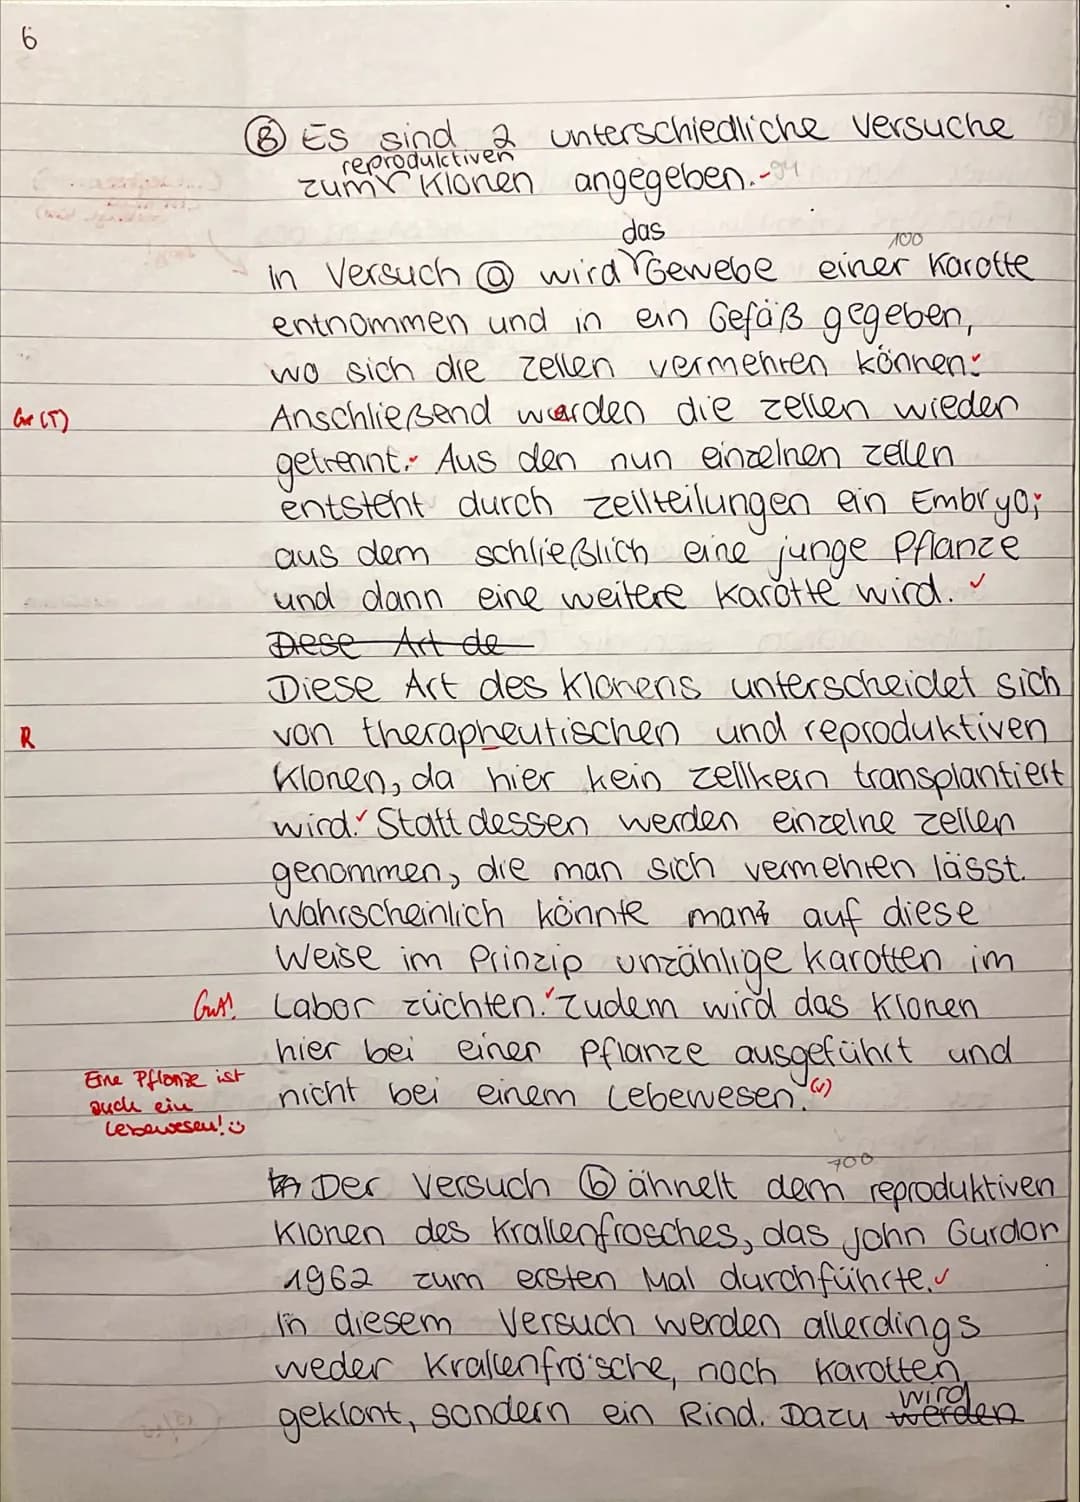 6
Ⓑ Es sind 2 unterschiedliche Versuche
reproduktiven
zum Klonen angegeben.
das
100
In Versuch ⓐ wird Gewebe einer Karotte
entnommen und in ein Gefäß gegeben,
wo sich die Zellen vermehren können.
Gr (T)
Anschließend werden die Zellen wieder
getrennt. Aus den nun einzelnen Zellen
entsteht durch Zellteilungen ein Embryo,
aus dem schließlich eine junge Pflanze
und dann eine weitere Karotte wird. ✓
Diese Art de
Diese Art des Klonens unterscheidet sich
R
von therapheutischen und reproduktiven
Klonen, da hier kein Zellkern transplantiert
wird. Statt dessen werden einzelne Zellen
genommen, die man sich vermehren lässt.
Wahrscheinlich könnte man auf diese
Weise im Prinzip unzählige Karotten im
Gut!
Labor züchten. Zudem wird das Klonen
hier bei einer Pflanze ausgeführt und
Eine Pflanze ist
auch ein
Lebewesen!
nicht bei einem Lebewesen. (✓)
700
Der Versuch ⓑ ähnelt dem reproduktiven
Klonen des Krallenfrosches, das John Gurdor
1962 zum ersten Mal durchführte. ✓
In diesem Versuch werden allerdings
weder Krallenfrösche, noch Karotten
wird
geklont, sondern ein Rind. Dazu werden